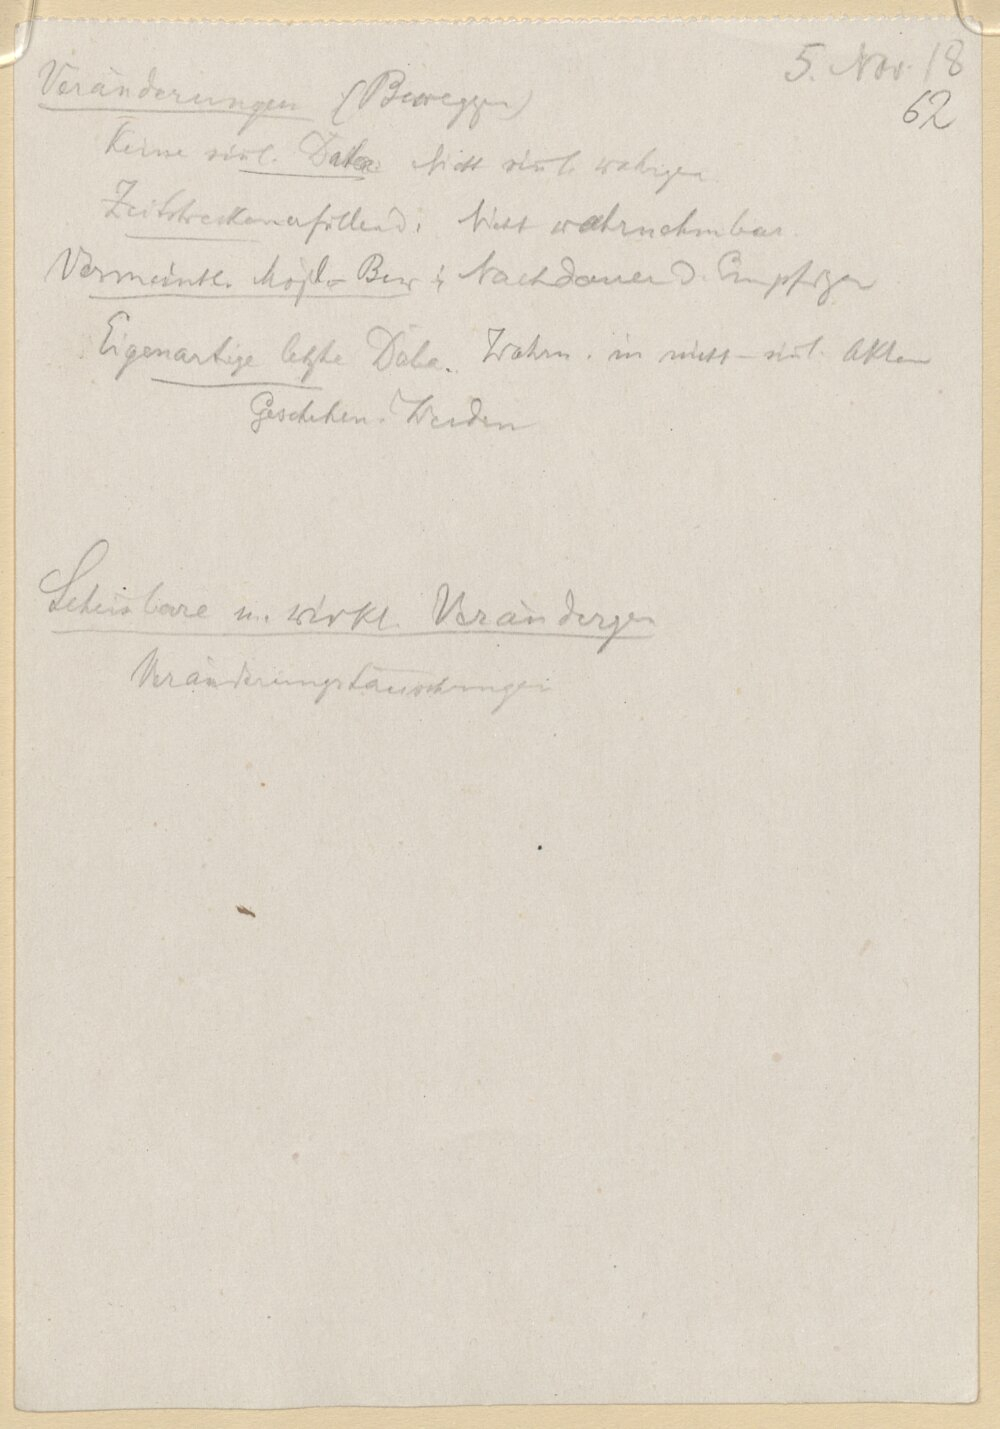 5. Nov. 18
62
Veränderungen (Beweggen)
Keine sinl. Data: Nicht sinl. wahrgen
Zeitstreckenerfüllend: Nicht wahrnehmbar.
Vermeintl. Bew : Nachdauernd. Empfdgen
Eigenartige letzte Data. Wahrn. in nicht-sinl. Akten
Geschehen. Werden
Scheinbare u. wirkl. Verändergen
Veränderungstäuschungen